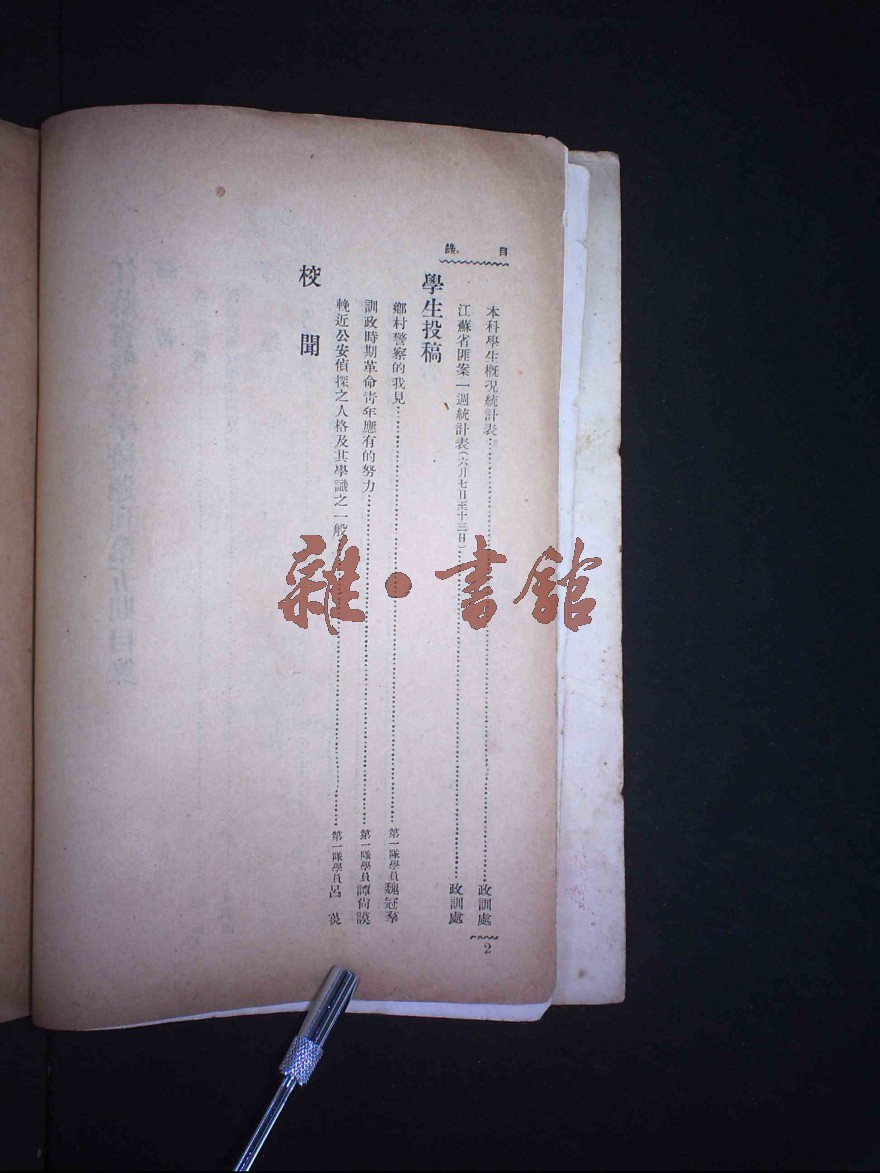 目錄
本科學生概況統計表……政訓處
江蘇省匪案一週統計表（六月七日至十三日）……政訓處
學生投稿
鄉村警察的我見……第一隊學員魏冠羣
訓政時期革命靑年應有的努力……第一隊學員譚尙謨
輓近公安偵探之人格及其學識之一般……第一隊學員呂
校聞
2
雜·書館